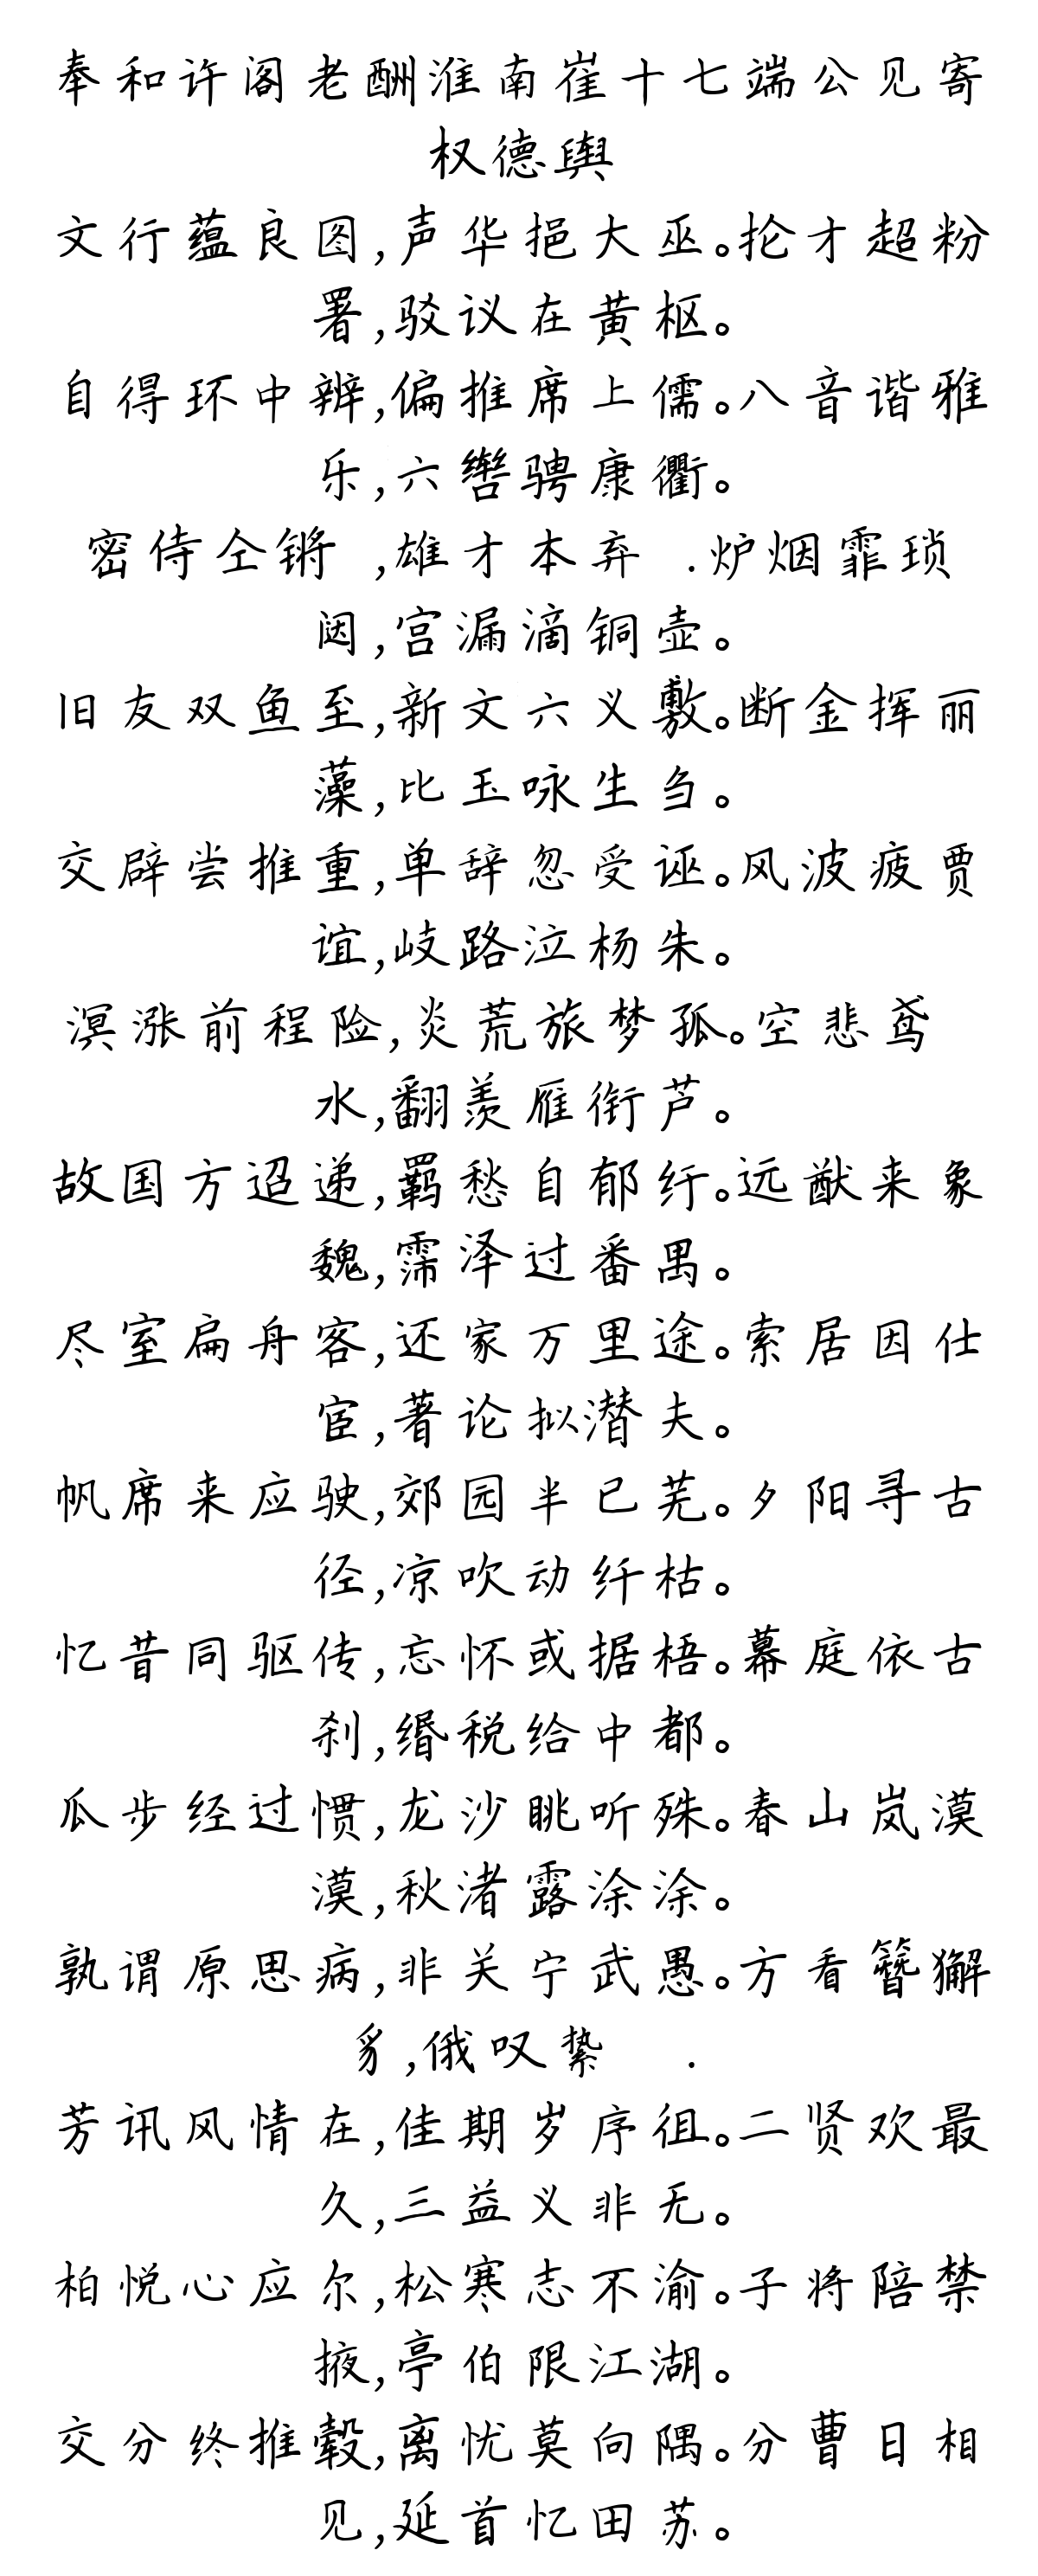 奉和许阁老酬淮南崔十七端公见寄
权德舆
文行蕴良图,声华挹大巫。抡才超粉
署,驳议在黄枢。
自得环中辨,偏推席上儒。八音谐雅
乐,六辔骋康衢。
密侍仝锵 ,雄才本弃 .炉烟霏琐
闼,宫漏滴铜壶。
旧友双鱼至,新文六义敷。断金挥丽
藻,比玉咏生刍。
交辟尝推重,单辞忽受诬。风波疲贾
谊,岐路泣杨朱。
溟涨前程险,炎荒旅梦孤。空悲鸢
水,翻羡雁衔芦。
故国方迢递,羁愁自郁纡。远猷来象
魏,霈泽过番禺。
尽室扁舟客,还家万里途。索居因仕
宦,著论拟潜夫。
帆席来应驶,郊园半已芜。夕阳寻古
径,凉吹动纤枯。
忆昔同驱传,忘怀或据梧。幕庭依古
刹,缗税给中都。
瓜步经过惯,龙沙眺听殊。春山岚漠
漠,秋渚露涂涂。
孰谓原思病,非关宁武愚。方看簪獬
豸,俄叹絷 .
芳讯风情在,佳期岁序徂。二贤欢最
久,三益义非无。
柏悦心应尔,松寒志不渝。子将陪禁
掖,亭伯限江湖。
交分终推毂,离忧莫向隅。分曹日相
见,延首忆田苏。